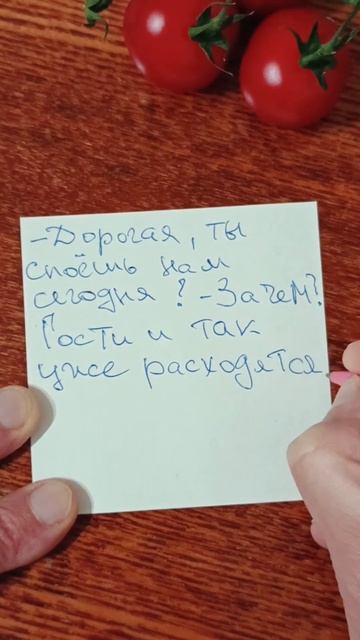 -Дорогая, ты
споёшь нам
сегодня? -Зачем?
Гости и так
уже расходятся.